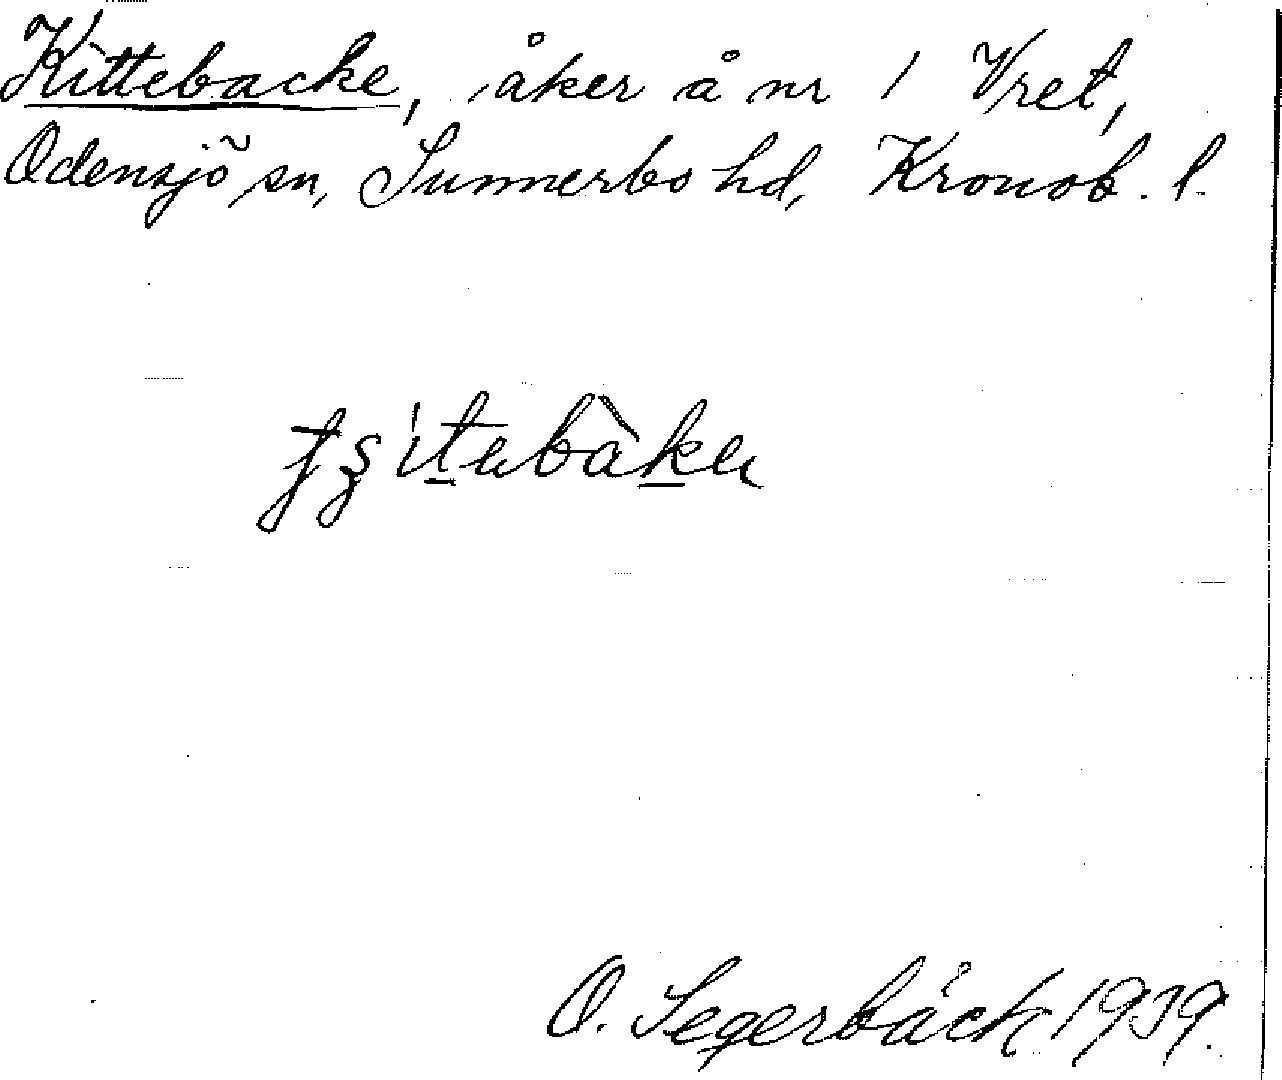 Kittebacke, åker å nr 1 Vret,
Odensjö sn, Sunnerbo hd, Kronob. l.
O. Segerbäck 1939.